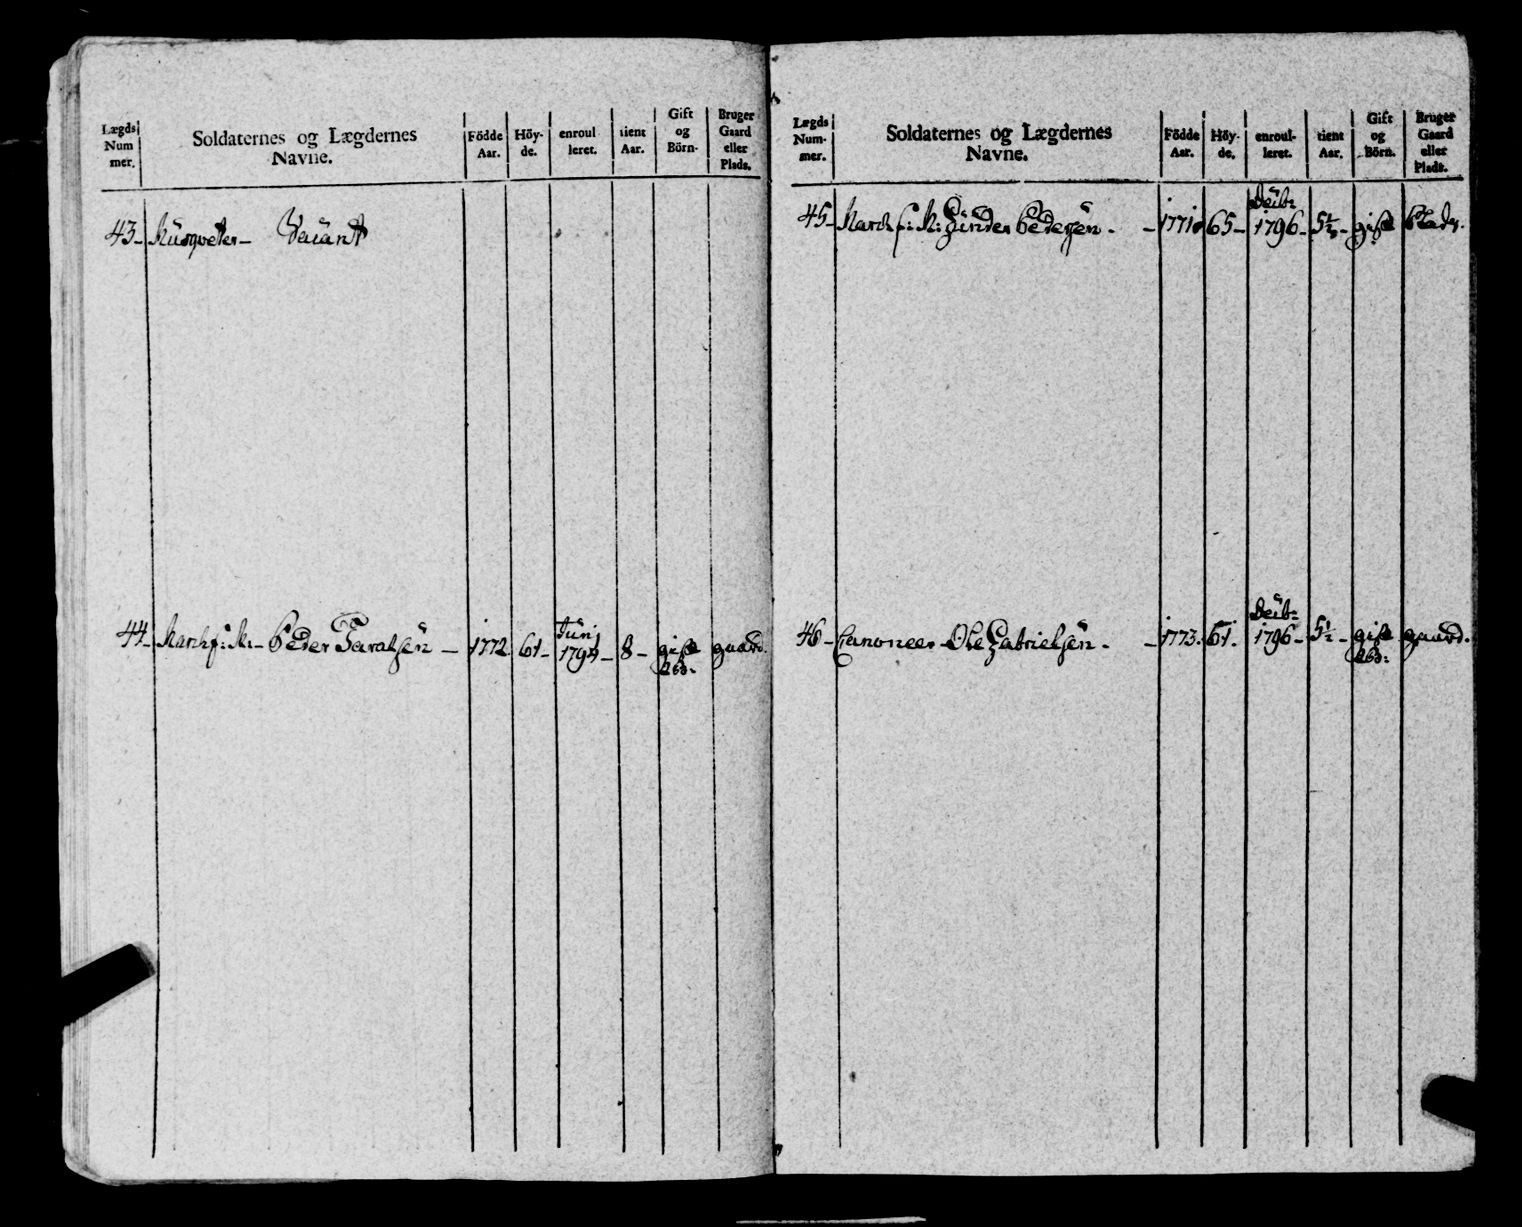 Lægds Num mer. Soldaternes og Lægdernes Navne. Födde Aar. Höy-de. enroul leret. tient Aar. Gift og Börn. Bruger Gaard eller Plads.
43- Musqveter- Vacant
44- Marchf: M:- Peder Taralsen - 1772 61- Junj 1794- 8- gift 2b: gaard.
Lægds Num-mer. Soldaternes og Lægdernes Navne. Födde Aar. Höy-de. enroul-leret. tient Aar. Gift og Börn. Bruger Gaard eller Plads.
45- March f: M: Gunder Pedersen. - 1771 65- 1796- 5½- gift Plads.
46- Canoneer Ole Gabrielsen. - 1773. 61. 1796- 5½- gift 2b: gaard.